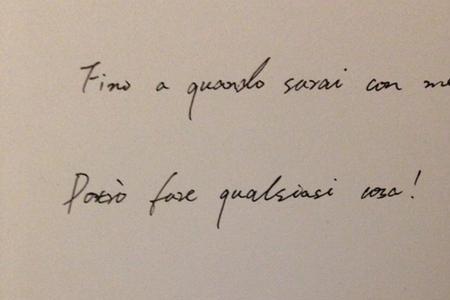 Fino a quando sarai con me
Potrò fare qualsiasi cosa!